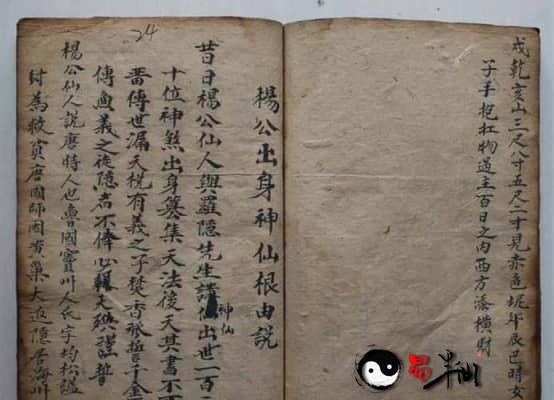 戌乾亥山三尺八寸五尺一寸見赤色坭年辰巳時女
子手抱扛物過主百日之內西方添橫財
楊公出身神仙根由說
昔日楊公仙人與羅隱先生講仙出世一百二
神仙
十位神煞出身纂集天法後天其書不
番傳世漏天机有義之子焚香祇誓千金
傳無義之徒隱者不俸心報天
楊公仙人說唐時人也魯國竇州人氏字均松謚
封為救貧唐國師因黃巢大返隱居海川
24
易